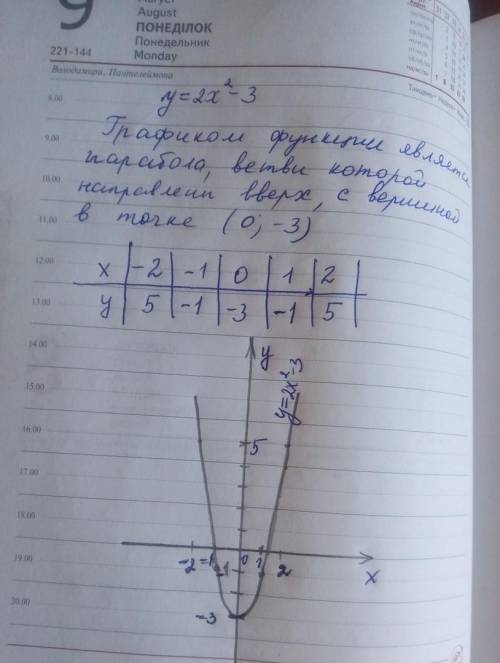 9
August
ПОНЕДІЛОК
Понедельник
Monday
221-144
Володимира, Пантелеймона
8.00
y=2x²-3
9.00
Графиком функции является
парабола, ветви которой
10.00
направлены вверх, с вершиной
11.00
в точке (0; -3)
12.00
x | -2 | -1 | 0 | 1 | 2
13.00
y | 5 | -1 | -3 | -1 | 5
14.00
y
y=2x²-3
15.00
16.00
5
17.00
18.00
19.00
-2 -1 0 1 2 x
-1
20.00
-3